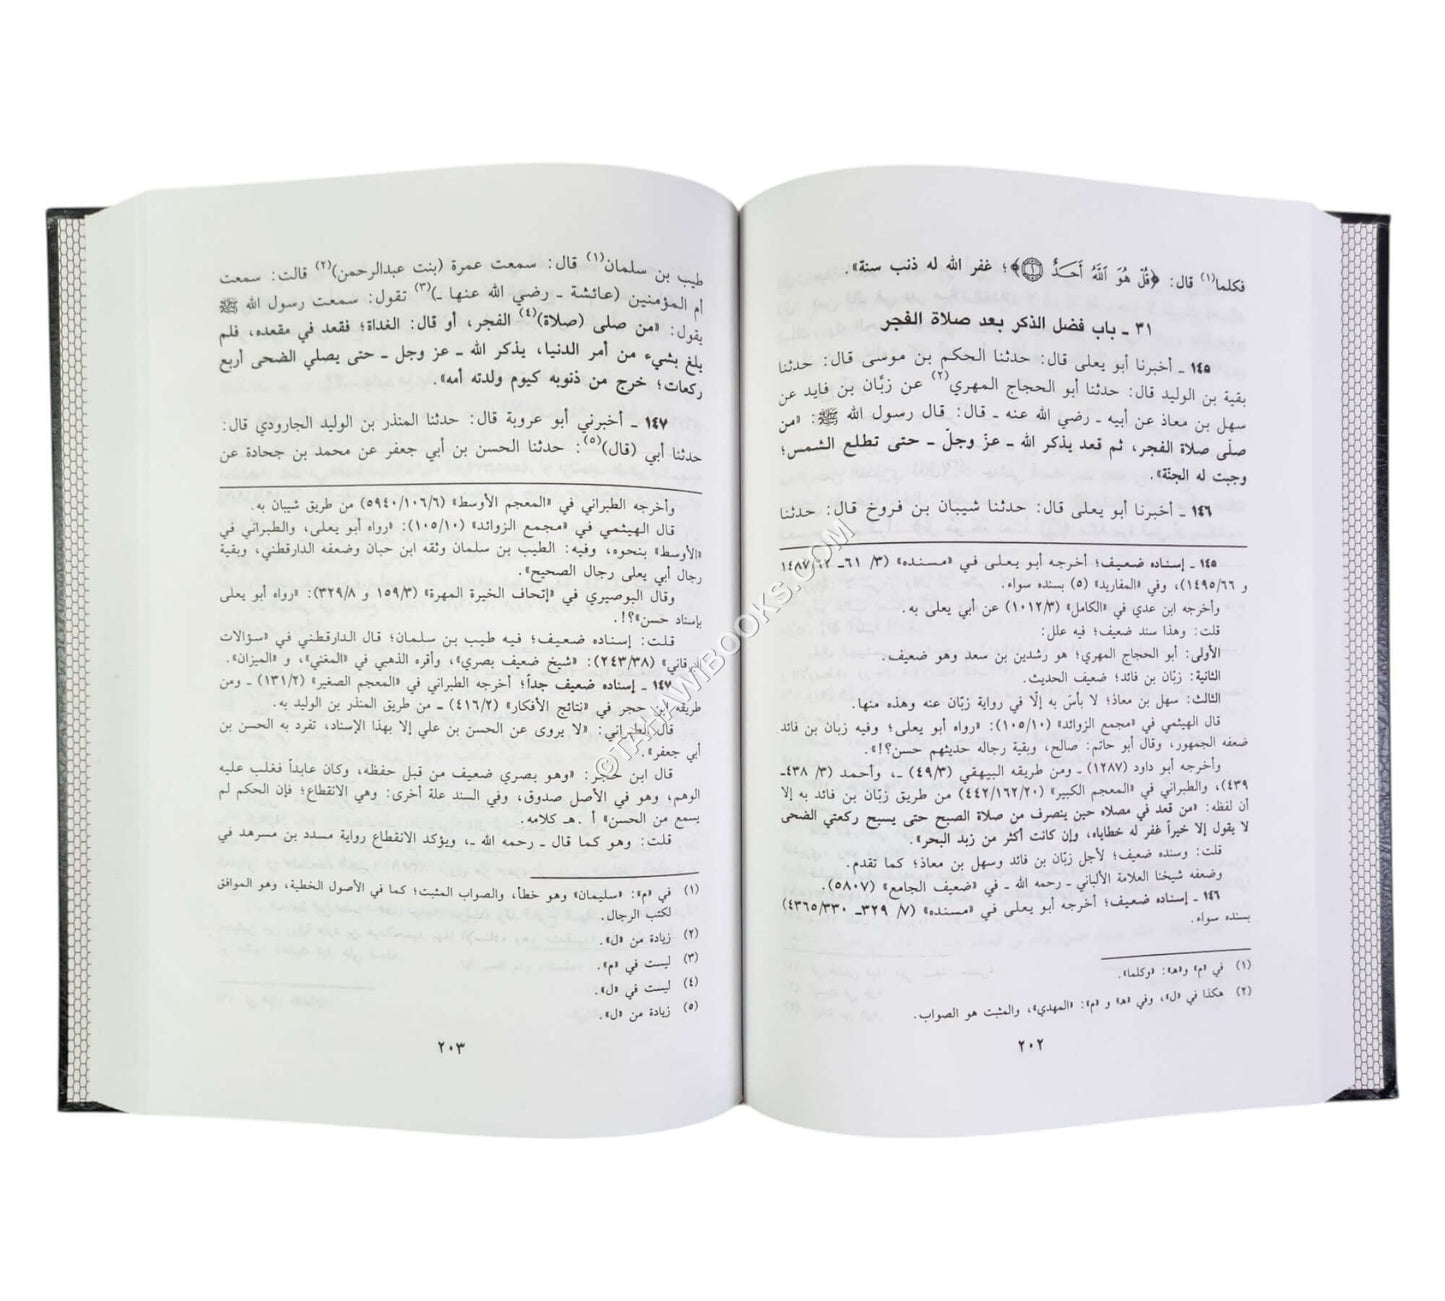 فكلما(١) قال: ﴿قُلْ هُوَ ٱللَّهُ أَحَدٌ ۝١﴾؛ غفر الله له ذنب سنة».
٣١ ـ باب فضل الذكر بعد صلاة الفجر
١٤٥ ـ أخبرنا أبو يعلى قال: حدثنا الحكم بن موسى قال: حدثنا
بقية بن الوليد قال: حدثنا أبو الحجاج المهري(٢) عن زبَّان بن فايد عن
سهل بن معاذ عن أبيه ـ رضي الله عنه ـ قال: قال رسول الله ﷺ: «من
صلّى صلاة الفجر، ثم قعد يذكر الله ـ عزّ وجلّ ـ حتى تطلع الشمس؛
وجبت له الجنّة».
١٤٦ ـ أخبرنا أبو يعلى قال: حدثنا شيبان بن فروخ قال: حدثنا
١٤٥ ـ إسناده ضعيف؛ أخرجه أبو يعلى في «مسنده» (٣/ ٦١ـ ٦٢/ ١٤٨٧
و ١٤٩٥/٦٦)، وفي «المفاريد» (٥) بسنده سواء.
وأخرجه ابن عدي في «الكامل» (١٠١٢/٣) عن أبي يعلى به.
قلت: وهذا سند ضعيف؛ فيه علل:
الأولى: أبو الحجاج المهري؛ هو رشدين بن سعد وهو ضعيف.
الثانية: زبّان بن فائد؛ ضعيف الحديث.
الثالث: سهل بن معاذ؛ لا بأسَ به إلّا في رواية زبّان عنه وهذه منها.
قال الهيثمي في «مجمع الزوائد» (١٠٥/١٠): «رواه أبو يعلى؛ وفيه زبان بن فائد
ضعفه الجمهور، وقال أبو حاتم: صالح، وبقية رجاله حديثهم حسن»؟!.
وأخرجه أبو داود (١٢٨٧) ـ ومن طريقه البيهقي (٤٩/٣) ـ، وأحمد (٣/ ٤٣٨ـ
٤٣٩)، والطبراني في «المعجم الكبير» (٤٤٢/١٦٢/٢٠) من طريق زبّان بن فائد به إلا
أن لفظه: «من قعد في مصلاه حين ينصرف من صلاة الصبح حتى يسبح ركعتي الضحى
لا يقول إلا خيراً غفر له خطاياه، وإن كانت أكثر من زبد البحر».
قلت: وسنده ضعيف؛ لأجل زبّان بن فائد وسهل بن معاذ؛ كما تقدم.
وضعفه شيخنا العلامة الألباني ـ رحمه الله ـ في «ضعيف الجامع» (٥٨٠٧).
١٤٦ ـ إسناده ضعيف؛ أخرجه أبو يعلى في «مسنده» (٧/ ٣٢٩ـ ٤٣٦٥/٣٣٠)
بسنده سواء.
(١) في «م» و«هـ»: «وكلما».
(٢) هكذا في «ل»، وفي «هـ» و «م»: «المهدي»، والمثبت هو الصواب.
٢٠٢
طيب بن سلمان(١) قال: سمعت عمرة (بنت عبدالرحمن)(٢) قالت: سمعت
أم المؤمنين (عائشة ـ رضي الله عنها ـ)(٣) تقول: سمعت رسول الله ﷺ
يقول: «من صلى (صلاة)(٤) الفجر، أو قال: الغداة؛ فقعد في مقعده، فلم
يلغ بشيء من أمر الدنيا، يذكر الله ـ عز وجل ـ حتى يصلي الضحى أربع
ركعات؛ خرج من ذنوبه كيوم ولدته أمه».
١٤٧ ـ أخبرني أبو عروبة قال: حدثنا المنذر بن الوليد الجارودي قال:
حدثنا أبي (قال)(٥): حدثنا الحسن بن أبي جعفر عن محمد بن جحادة عن
وأخرجه الطبراني في «المعجم الأوسط» (٥٩٤٠/١٠٦/٦) من طريق شيبان به.
قال الهيثمي في «مجمع الزوائد» (١٠٥/١٠): «رواه أبو يعلى، والطبراني في
«الأوسط» بنحوه، وفيه: الطيب بن سلمان وثقه ابن حبان وضعفه الدارقطني، وبقية
رجال أبي يعلى رجال الصحيح».
وقال البوصيري في «إتحاف الخيرة المهرة» (١٥٩/٣ و ٣٢٩/٨): «رواه أبو يعلى
بإسناد حسن»؟!.
قلت: إسناده ضعيف؛ فيه طيب بن سلمان؛ قال الدارقطني في «سؤالات
البرقاني» (٢٤٣/٣٨): «شيخ ضعيف بصري»، وأقره الذهبي في «المغني»، و «الميزان».
١٤٧ ـ إسناده ضعيف جداً؛ أخرجه الطبراني في «المعجم الصغير» (١٣١/٢) ـ ومن
طريقه ابن حجر في «نتائج الأفكار» (٤١٦/٢) ـ من طريق المنذر بن الوليد به.
قال الطبراني: «لا يروى عن الحسن بن علي إلا بهذا الإسناد، تفرد به الحسن بن
أبي جعفر».
قال ابن حجر: «وهو بصري ضعيف من قبل حفظه، وكان عابداً فغلب عليه
الوهم، وهو في الأصل صدوق، وفي السند علة أخرى: وهي الانقطاع؛ فإن الحكم لم
يسمع من الحسن» أ. هـ كلامه.
قلت: وهو كما قال ـ رحمه الله ـ، ويؤكد الانقطاع رواية مسدد بن مسرهد في
(١) في «م»: «سليمان» وهو خطأ، والصواب المثبت؛ كما في الأصول الخطية، وهو الموافق
لكتب الرجال.
(٢) زيادة من «ل».
(٣) ليست في «م».
(٤) ليست في «ل».
(٥) زيادة من «ل».
٢٠٣
©TAHAWIBOOKS.COM